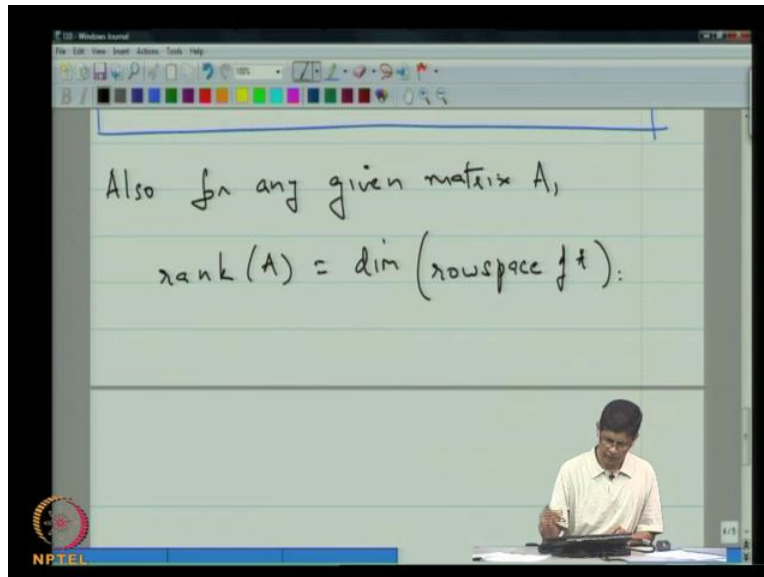 110 - Windows Journal
File Edit View Insert Actions Tools Help
100%
B I
Also for any given matrix A,
rank (A) = dim (rowspace of A).
4/5
NPTEL